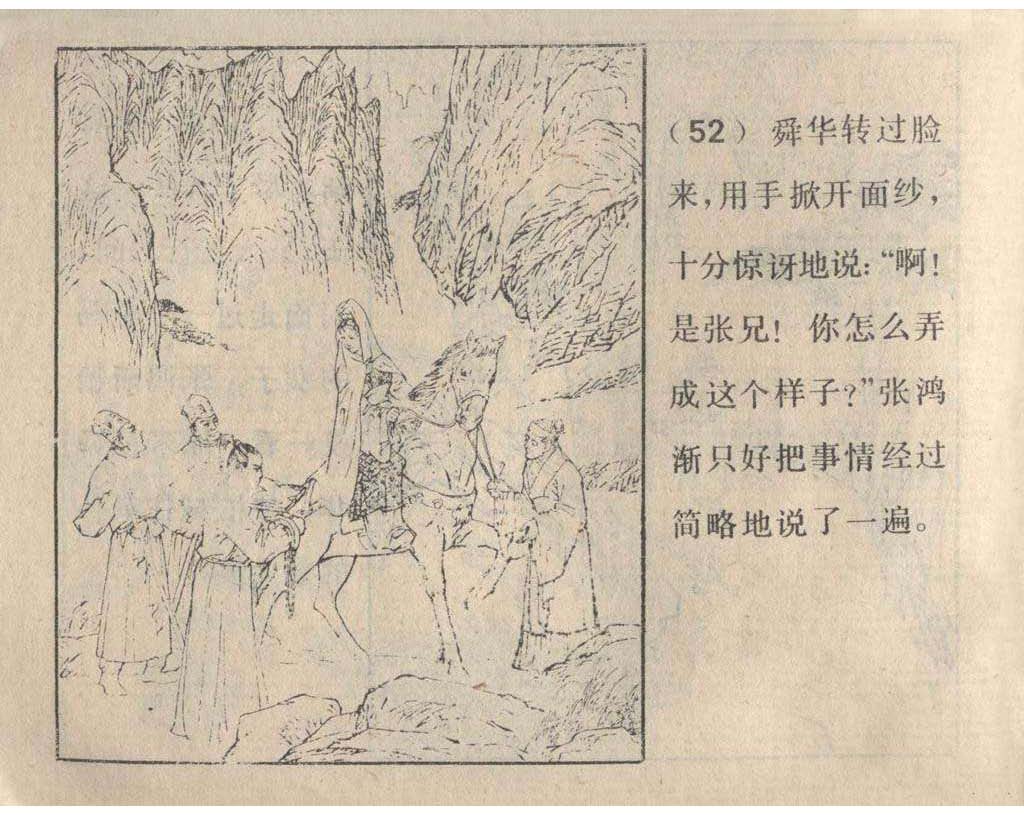 （52）舜华转过脸
来，用手掀开面纱，
十分惊讶地说：“啊！
是张兄！你怎么弄
成这个样子？”张鸿
渐只好把事情经过
简略地说了一遍。